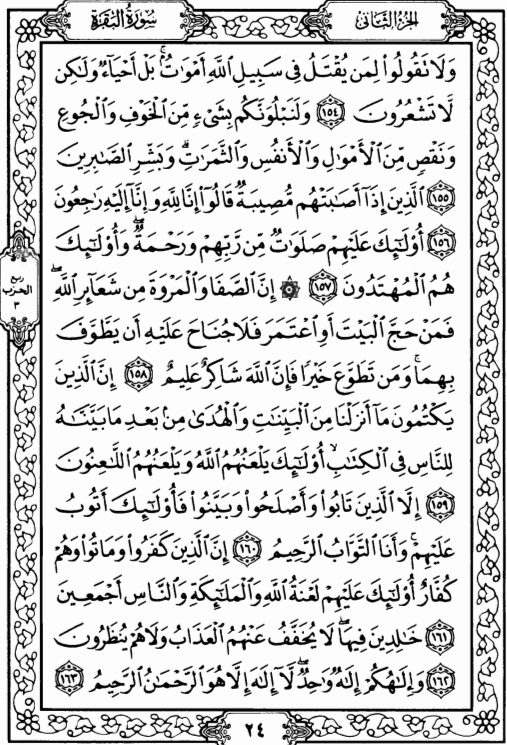 الجزء الثاني سورة البقرة
وَلَا تَقُولُوا۟ لِمَن يُقْتَلُ فِى سَبِيلِ ٱللَّهِ أَمْوَٰتٌۢ ۚ بَلْ أَحْيَآءٌ وَلَٰكِن
لَّا تَشْعُرُونَ ١٥٤ وَلَنَبْلُوَنَّكُم بِشَىْءٍ مِّنَ ٱلْخَوْفِ وَٱلْجُوعِ
وَنَقْصٍ مِّنَ ٱلْأَمْوَٰلِ وَٱلْأَنفُسِ وَٱلثَّمَرَٰتِ ۗ وَبَشِّرِ ٱلصَّٰبِرِينَ
١٥٥ ٱلَّذِينَ إِذَآ أَصَٰبَتْهُم مُّصِيبَةٌ قَالُوٓا۟ إِنَّا لِلَّهِ وَإِنَّآ إِلَيْهِ رَٰجِعُونَ
١٥٦ أُو۟لَٰٓئِكَ عَلَيْهِمْ صَلَوَٰتٌ مِّن رَّبِّهِمْ وَرَحْمَةٌ ۖ وَأُو۟لَٰٓئِكَ
هُمُ ٱلْمُهْتَدُونَ ١٥٧ ۞ إِنَّ ٱلصَّفَا وَٱلْمَرْوَةَ مِن شَعَآئِرِ ٱللَّهِ ۖ
فَمَنْ حَجَّ ٱلْبَيْتَ أَوِ ٱعْتَمَرَ فَلَا جُنَاحَ عَلَيْهِ أَن يَطَّوَّفَ
بِهِمَا ۚ وَمَن تَطَوَّعَ خَيْرًا فَإِنَّ ٱللَّهَ شَاكِرٌ عَلِيمٌ ١٥٨ إِنَّ ٱلَّذِينَ
يَكْتُمُونَ مَآ أَنزَلْنَا مِنَ ٱلْبَيِّنَٰتِ وَٱلْهُدَىٰ مِنۢ بَعْدِ مَا بَيَّنَّٰهُ
لِلنَّاسِ فِى ٱلْكِتَٰبِ ۙ أُو۟لَٰٓئِكَ يَلْعَنُهُمُ ٱللَّهُ وَيَلْعَنُهُمُ ٱللَّٰعِنُونَ
١٥٩ إِلَّا ٱلَّذِينَ تَابُوا۟ وَأَصْلَحُوا۟ وَبَيَّنُوا۟ فَأُو۟لَٰٓئِكَ أَتُوبُ
عَلَيْهِمْ ۚ وَأَنَا ٱلتَّوَّابُ ٱلرَّحِيمُ ١٦٠ إِنَّ ٱلَّذِينَ كَفَرُوا۟ وَمَاتُوا۟ وَهُمْ
كُفَّارٌ أُو۟لَٰٓئِكَ عَلَيْهِمْ لَعْنَةُ ٱللَّهِ وَٱلْمَلَٰٓئِكَةِ وَٱلنَّاسِ أَجْمَعِينَ
١٦١ خَٰلِدِينَ فِيهَا ۖ لَا يُخَفَّفُ عَنْهُمُ ٱلْعَذَابُ وَلَا هُمْ يُنظَرُونَ
١٦٢ وَإِلَٰهُكُمْ إِلَٰهٌ وَٰحِدٌ ۖ لَّآ إِلَٰهَ إِلَّا هُوَ ٱلرَّحْمَٰنُ ٱلرَّحِيمُ ١٦٣
ربع
الحزب
٣
٢٤